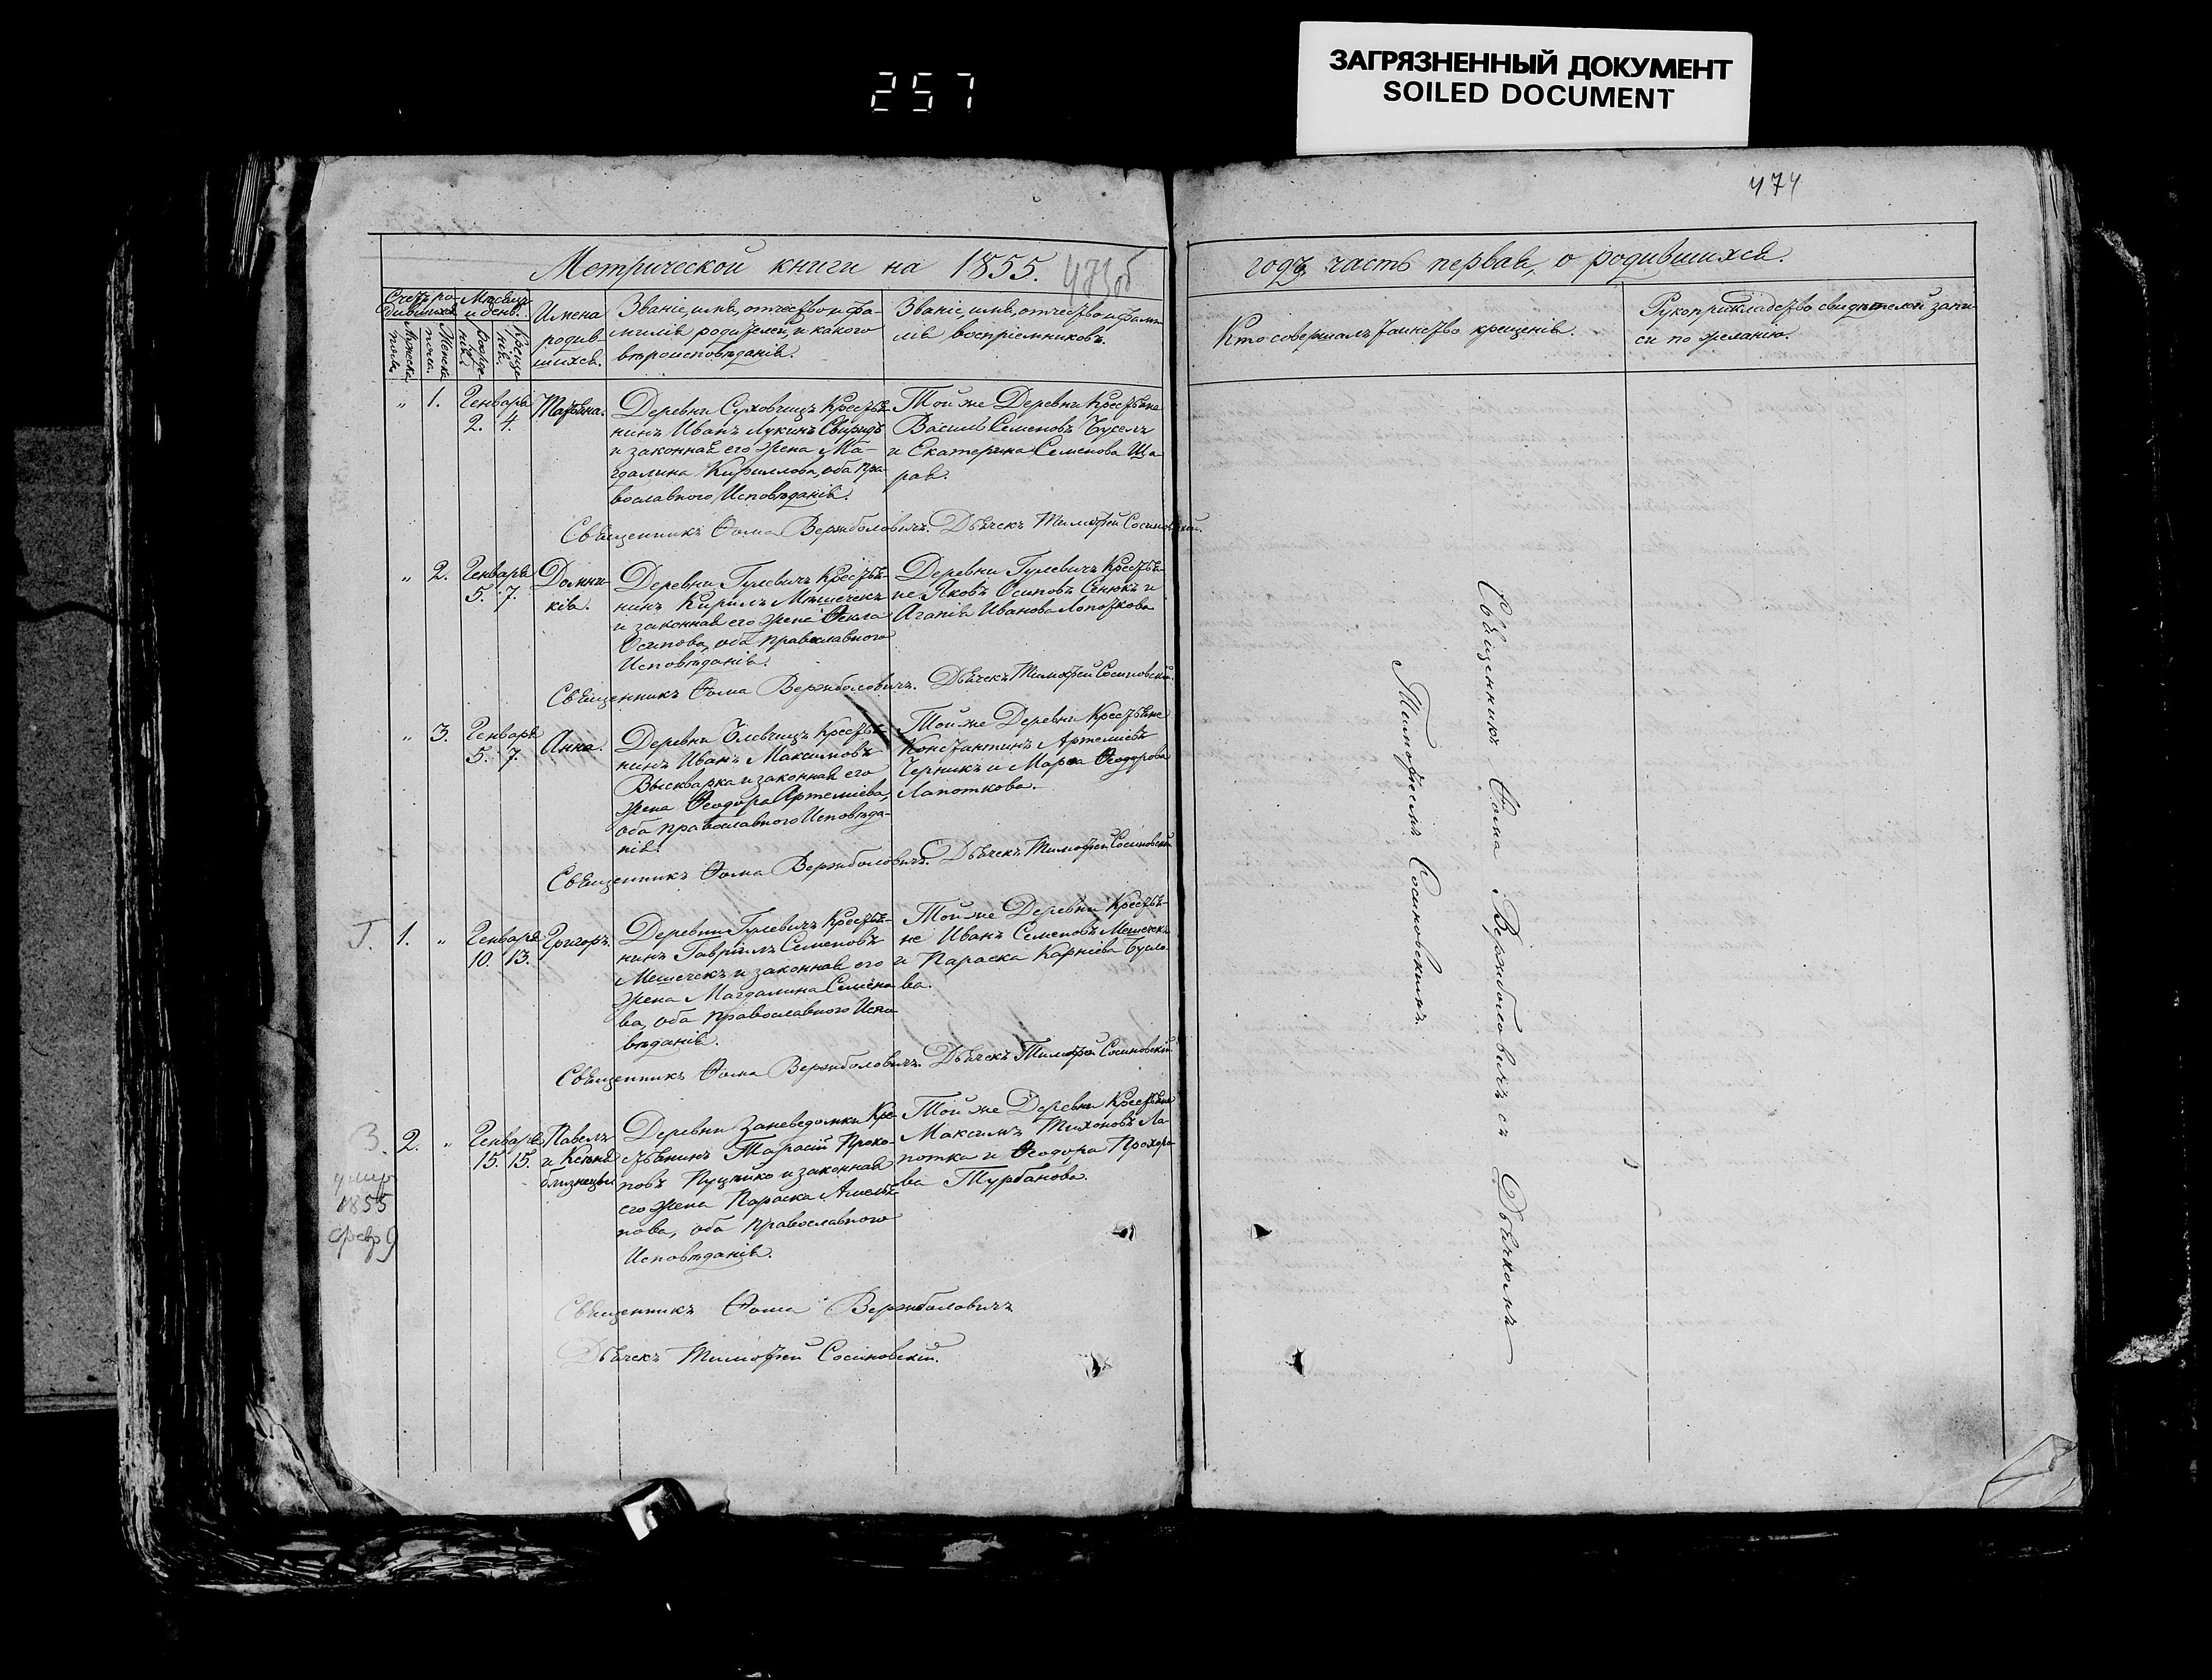 257
ЗАГРЯЗНЕННЫЙ ДОКУМЕНТ
SOILED DOCUMENT
474
Метрической книги на 1855. 473об
Счетъ ро-
дившихся
Мѣсяцъ
и день.
Мужеска
пола.
Женска
пола.
Рожде-
нія.
Креще-
нія.
Имена
родив-
шихся.
Званіе, имя, отчество и фа-
милія родителей, и какого
вѣроисповѣданія.
Званіе, имя, отчество и фами-
лія воспріемниковъ.
„ 1. Генваря
2. 4.
Татьяна.
Деревни Суховчицъ Крестья-
нинъ Иванъ Лукинъ Свиридъ
и законная его жена Ма-
гдалина Кириллова, оба Пра-
вославного Исповѣданія.
Той же Деревни Крестьяне
Василь Семеновъ Бусель
и Екатерина Семенова Ща-
рая.
Священникъ Ѳома Вержболовичъ. Дьячекъ Тимофей Сосиновскій.
„ 2. Генваря
5. 7.
Домни-
кія.
Деревни Гулевичъ Крестья-
нинъ Кирилъ Мѣшечекъ
и законная его жена Ѳекла
Осипова, оба православного
Исповѣданія.
Деревни Гулевичъ Крестья-
не Яковъ Осиповъ Сенюкъ и
Агапія Иванова Лопоткова
Священникъ Ѳома Вержболовичъ. Дьячекъ Тимофей Сосиновскій.
„ 3. Генваря
5. 7.
Анна.
Деревни Крестья-
нинъ Иванъ Максимовъ
Выскварка и законная его
жена Ѳеодора Артеміева,
оба православного Исповѣда-
нія.
Той же Деревни Крестьяне
Константинъ Артеміевъ
Черникъ и Марѳа Ѳеодорова
Лапоткова.
Священникъ Ѳома Вержболовичъ. Дьячекъ Тимофей Сосиновскій
1. „ Генваря
10. 13.
Григоръ.
Деревни Гулевичъ Крестья-
нинъ Гавріилъ Семеновъ
Мешечекъ и законная его
жена Магдалина Семено
ва, оба православного Испо
вѣданія.
Той же Деревни Крестья-
не Иванъ Семеновъ Мешечекъ
и Параска Карніева Бусло
ва.
Священникъ Ѳома Вержболовичъ. Дьячекъ Тимофей Сосиновскій
3.
умер
1855
февр 9
2. „ Генваря
15. 15.
Павелъ
и Ксенія
близнецы
Деревни Заневедомки Кре-
стьянинъ Тарасій Проко-
повъ и законная
его жена Параска Амелья
нова, оба православного
Исповѣданія.
Той же Деревни Крестьяне
Максимъ Тихоновъ Ла-
потка и Ѳеодора Прохоро
ва Турбанова.
Священникъ Ѳома Вержболовичъ
Дьячекъ Тимофей Сосиновскій.
года часть первая, о родившихся.
Кто совершалъ таинство крещенія.
Рукоприкладство свидѣтелей запи
си по желанію.
Священникъ Ѳома Вержболовичъ съ Дьячкомъ
Тимофеемъ Сосиновскимъ.